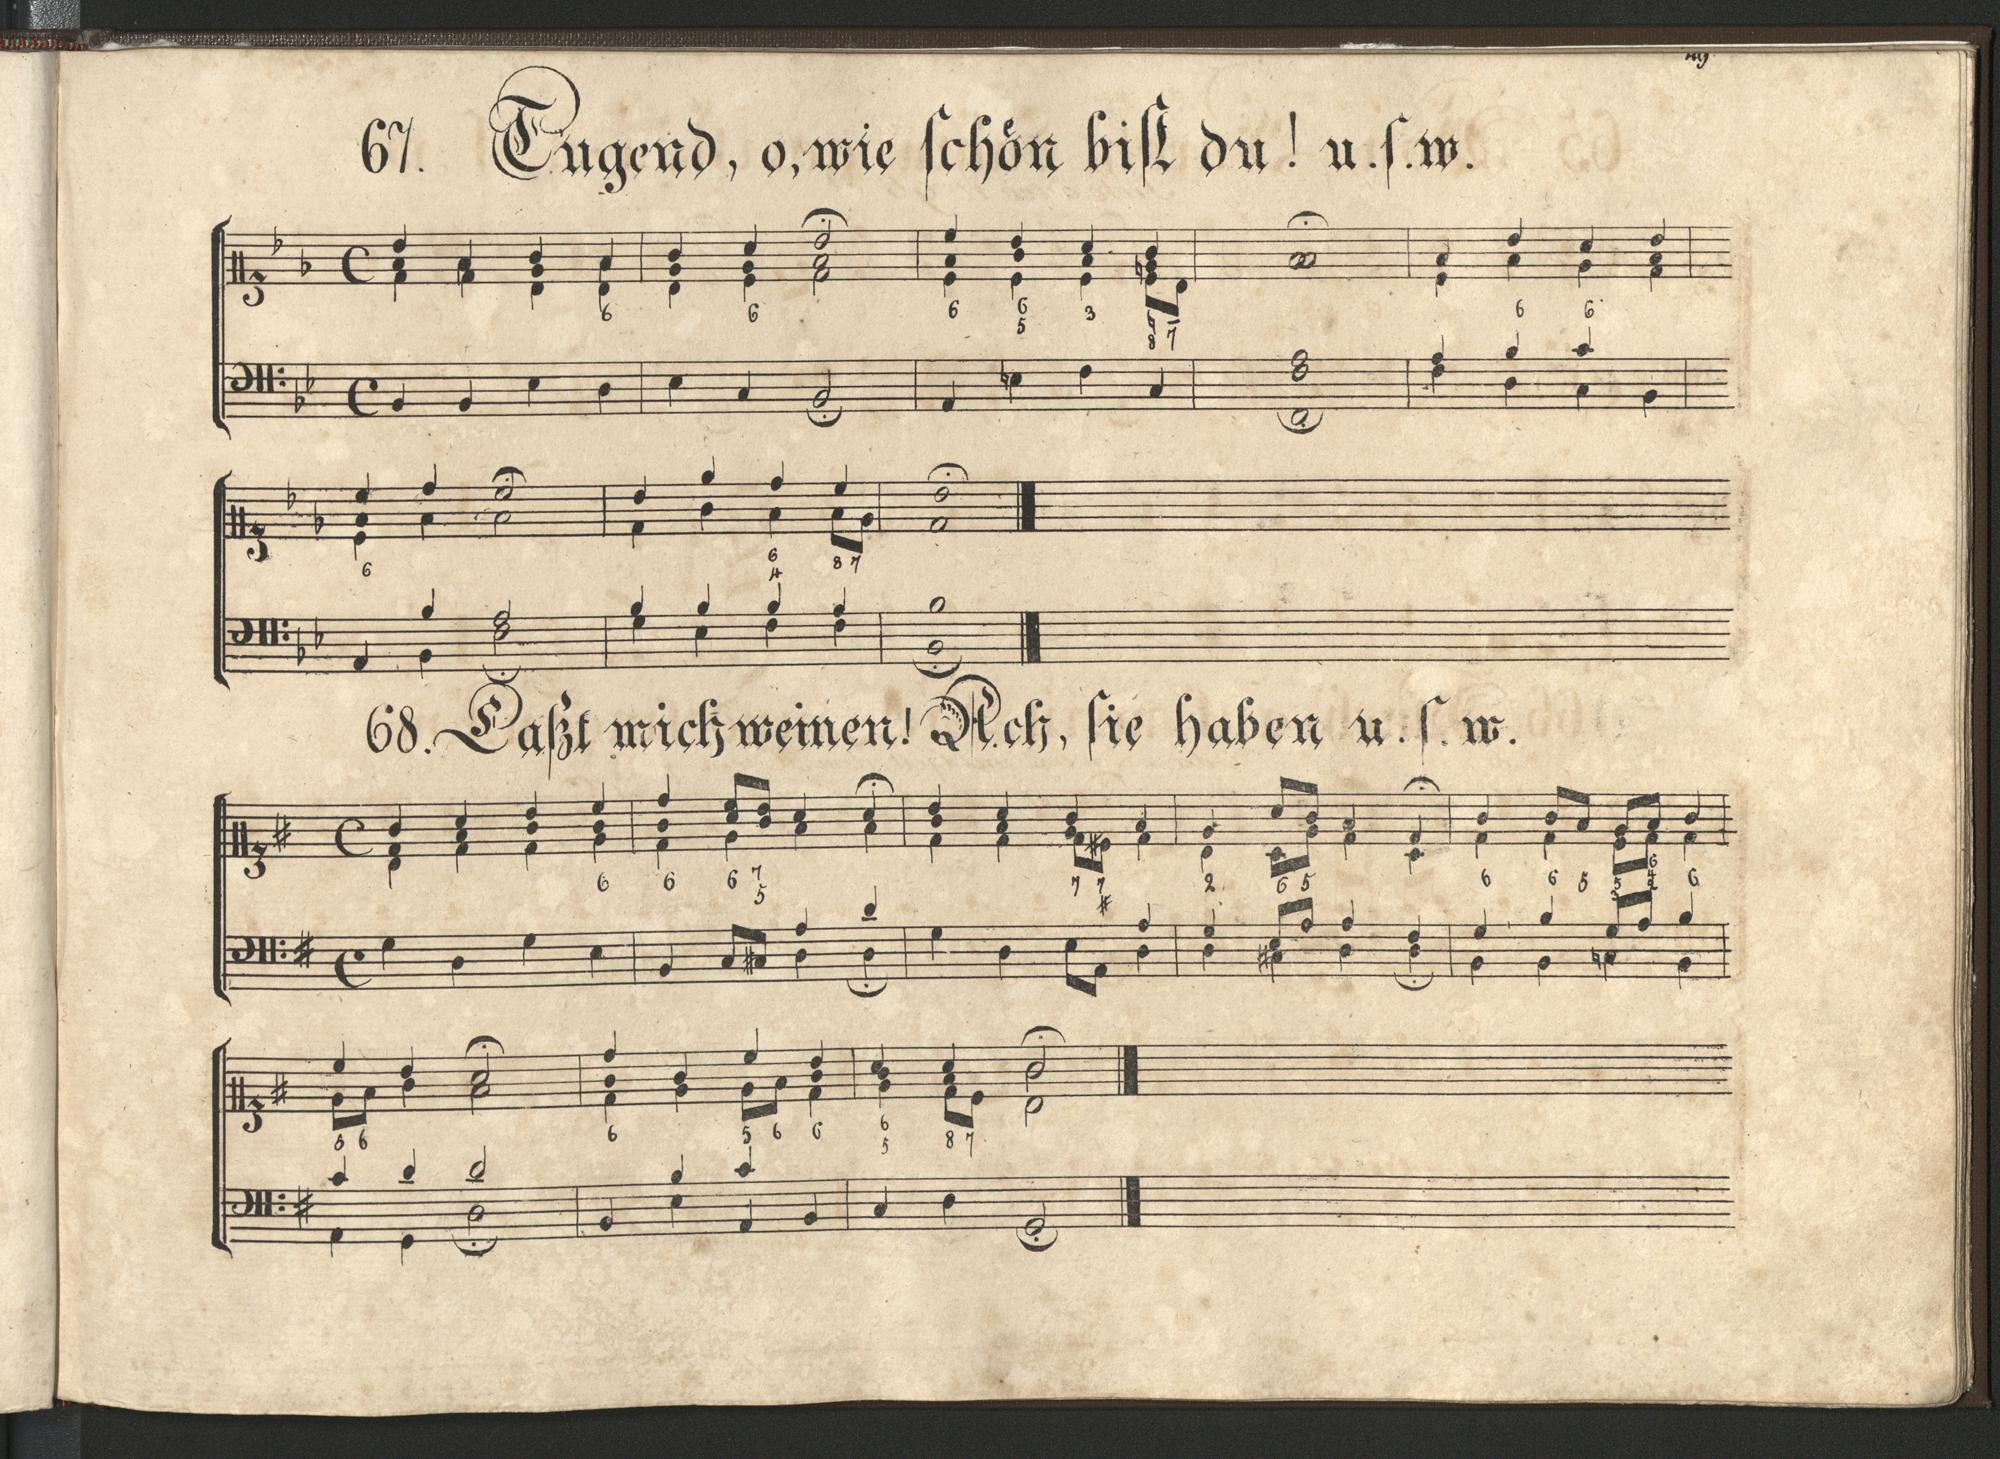 67. Tugend, o, wie ſchön biſt du! u. ſ. w.
6 6 6 6 3 ♮ 6 6
5 8 7
6 6 8 7
4
68. Laßt mich weinen! Ach, ſie haben u. ſ. w.
6 6 6 7 7 7 2 6 5 6 6 5 5 6 6
5 # 3 4
5 6 6 5 6 6 6 8 7
5